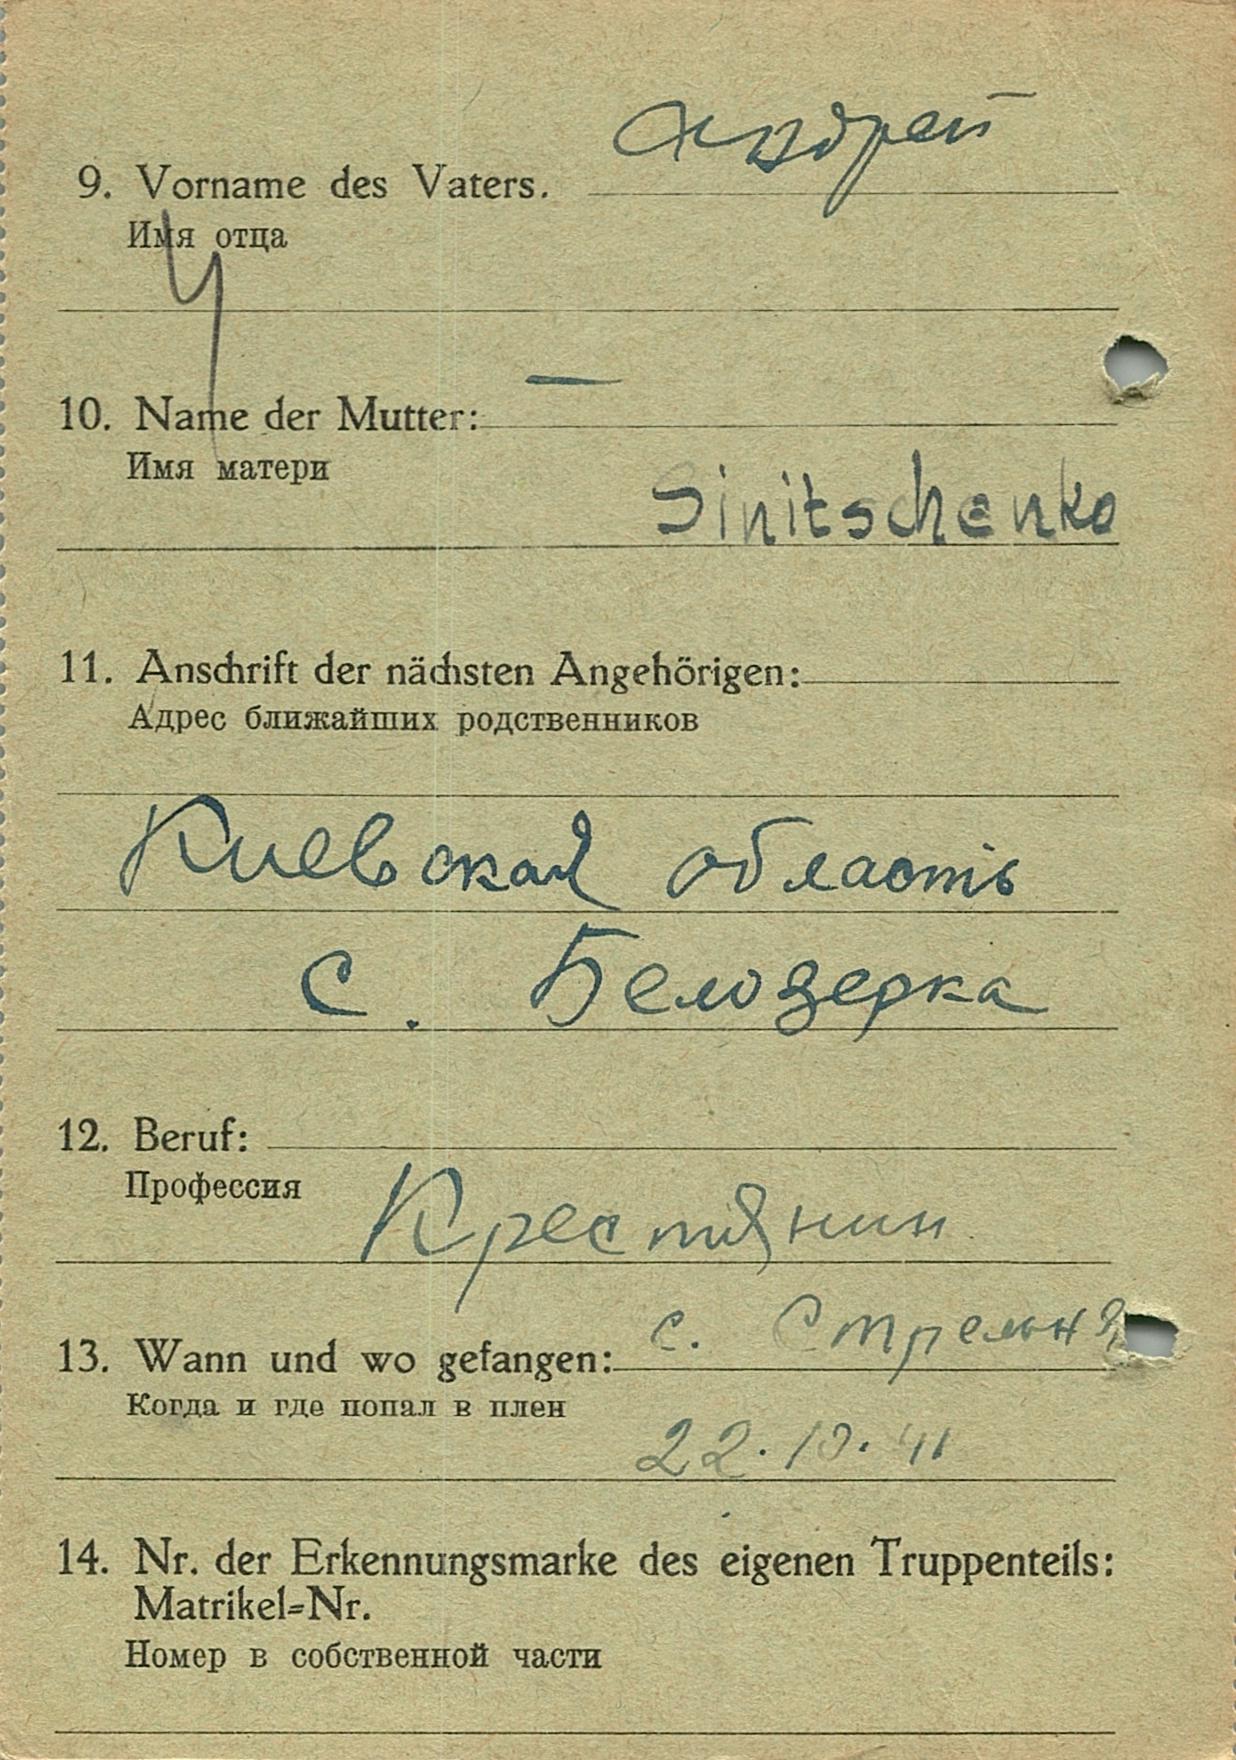 Андрей
9. Vorname des Vaters.
Имя отца
Ч
—
10. Name der Mutter:
Имя матери
Sinitschenko
11. Anschrift der nächsten Angehörigen:
Адрес ближайших родственников
Киевская область
с. Белозерка
12. Beruf:
Профессия
Крестянин
с. Стрельня
13. Wann und wo gefangen:
Когда и где попал в плен
22.10.41
14. Nr. der Erkennungsmarke des eigenen Truppenteils:
Matrikel=Nr.
Номер в собственной части